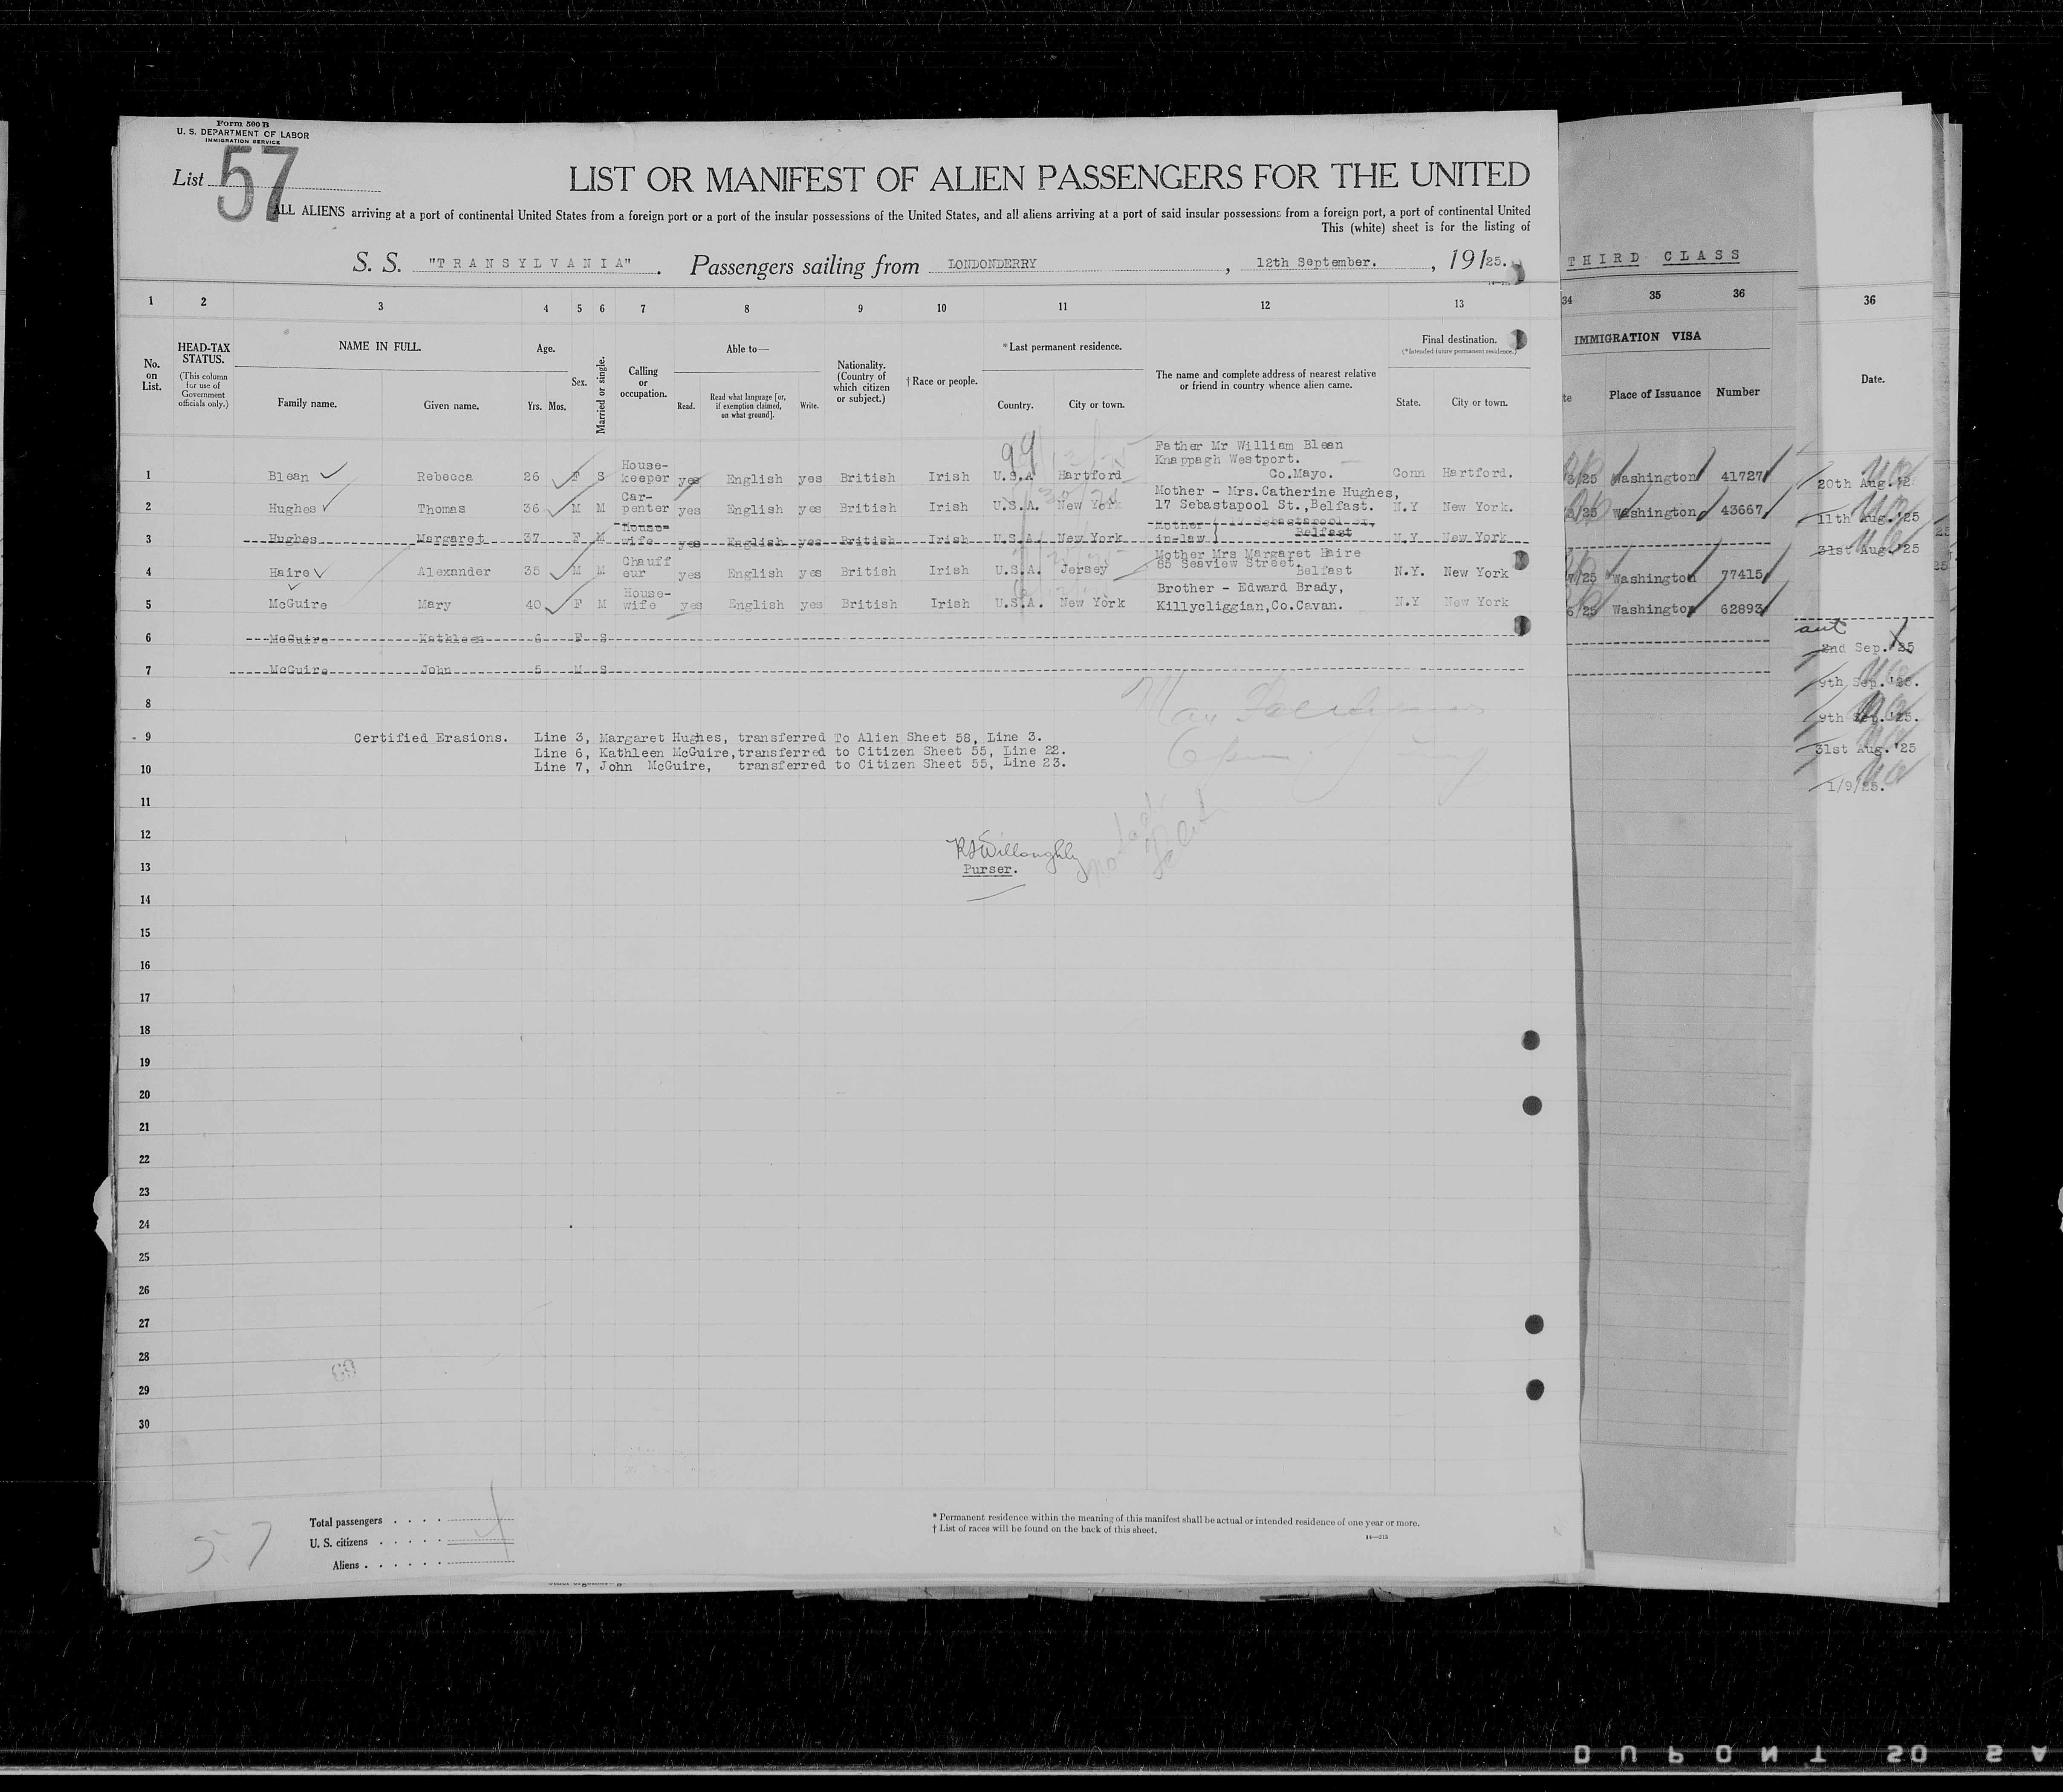 Form 500 B
U. S. DEPARTMENT OF LABOR
IMMIGRATION SERVICE
List 57
LIST OR MANIFEST OF ALIEN PASSENGERS FOR THE UNITED
ALL ALIENS arriving at a port of continental United States from a foreign port or a port of the insular possessions of the United States, and all aliens arriving at a port of said insular possessions from a foreign port, a port of continental United
This (white) sheet is for the listing of
S. S. "TRANSYLVANIA". Passengers sailing from LONDONDERRY, 12th September., 19125.
THIRD CLASS
1 2 3 4 5 6 7 8 9 10 11 12 13 34 35 36 36
No. on List.
HEAD-TAX STATUS.
(This column for use of Government officials only.)
NAME IN FULL.
Family name. Given name.
Age.
Yrs. Mos.
Sex.
Married or single.
Calling or occupation.
Able to—
Read. Read what language [or, if exemption claimed, on what ground]. Write.
Nationality. (Country of which citizen or subject.)
† Race or people.
*Last permanent residence.
Country. City or town.
The name and complete address of nearest relative or friend in country whence alien came.
Final destination.
(*Intended future permanent residence.)
State. City or town.
IMMIGRATION VISA
Place of Issuance Number
Date.
1 Blean Rebecca 26 F S House-keeper yes English yes British Irish U.S.A Hartford Father Mr William Blean Knappagh Westport. Co.Mayo. Conn Hartford. Washington 41727
2 Hughes Thomas 36 M M Car-penter yes English yes British Irish U.S.A. New York Mother - Mrs.Catherine Hughes, 17 Sebastapool St.,Belfast. N.Y New York. Washington 43667
3 Hughes Margaret 37 F M House-wife yes English yes British Irish U.S.A. New York Mother in-law 17 Sebastapool St, Belfast N.Y New York
4 Haire Alexander 35 M M Chauff eur yes English yes British Irish U.S.A. Jersey Mother Mrs Margaret Haire 85 Seaview Street. Belfast N.Y. New York Washington 77415
5 McGuire Mary 40 F M House-wife yes English yes British Irish U.S.A. New York Brother - Edward Brady, Killycliggian,Co.Cavan. N.Y New York Washington 62893
6 McGuire Kathleen 6 F S
7 McGuire John 5 M S
8
9 Certified Erasions. Line 3, Margaret Hughes, transferred To Alien Sheet 58, Line 3.
Line 6, Kathleen McGuire,transferred to Citizen Sheet 55, Line 22.
10 Line 7, John McGuire, transferred to Citizen Sheet 55, Line 23.
11
12
R S Willoughly
13 Purser.
14
15
16
17
18
19
20
21
22
23
24
25
26
27
28
29
30
20th Aug.
11th Aug.'25
31st Aug.'25
2nd Sep.'25
9th Sep.'25.
9th Sep.'25.
31st Aug.'25
1/9/25.
57
Total passengers
U. S. citizens
Aliens
* Permanent residence within the meaning of this manifest shall be actual or intended residence of one year or more.
† List of races will be found on the back of this sheet.
14—213
DUPONT